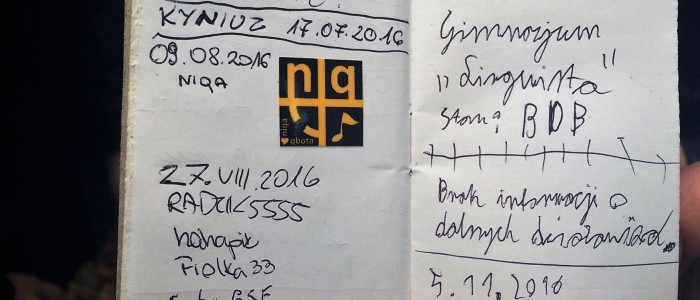 KYNIUZ 17.07.2016
09.08.2016
NIQA
nq
niqa
obota
27.VIII.2016
RADZIK5555
hahapik
Fiolka33
Gimnazjum
„Lingwista”
Stan: BDB
Brak informacji o
dalnych działaniach.
5.11.2016